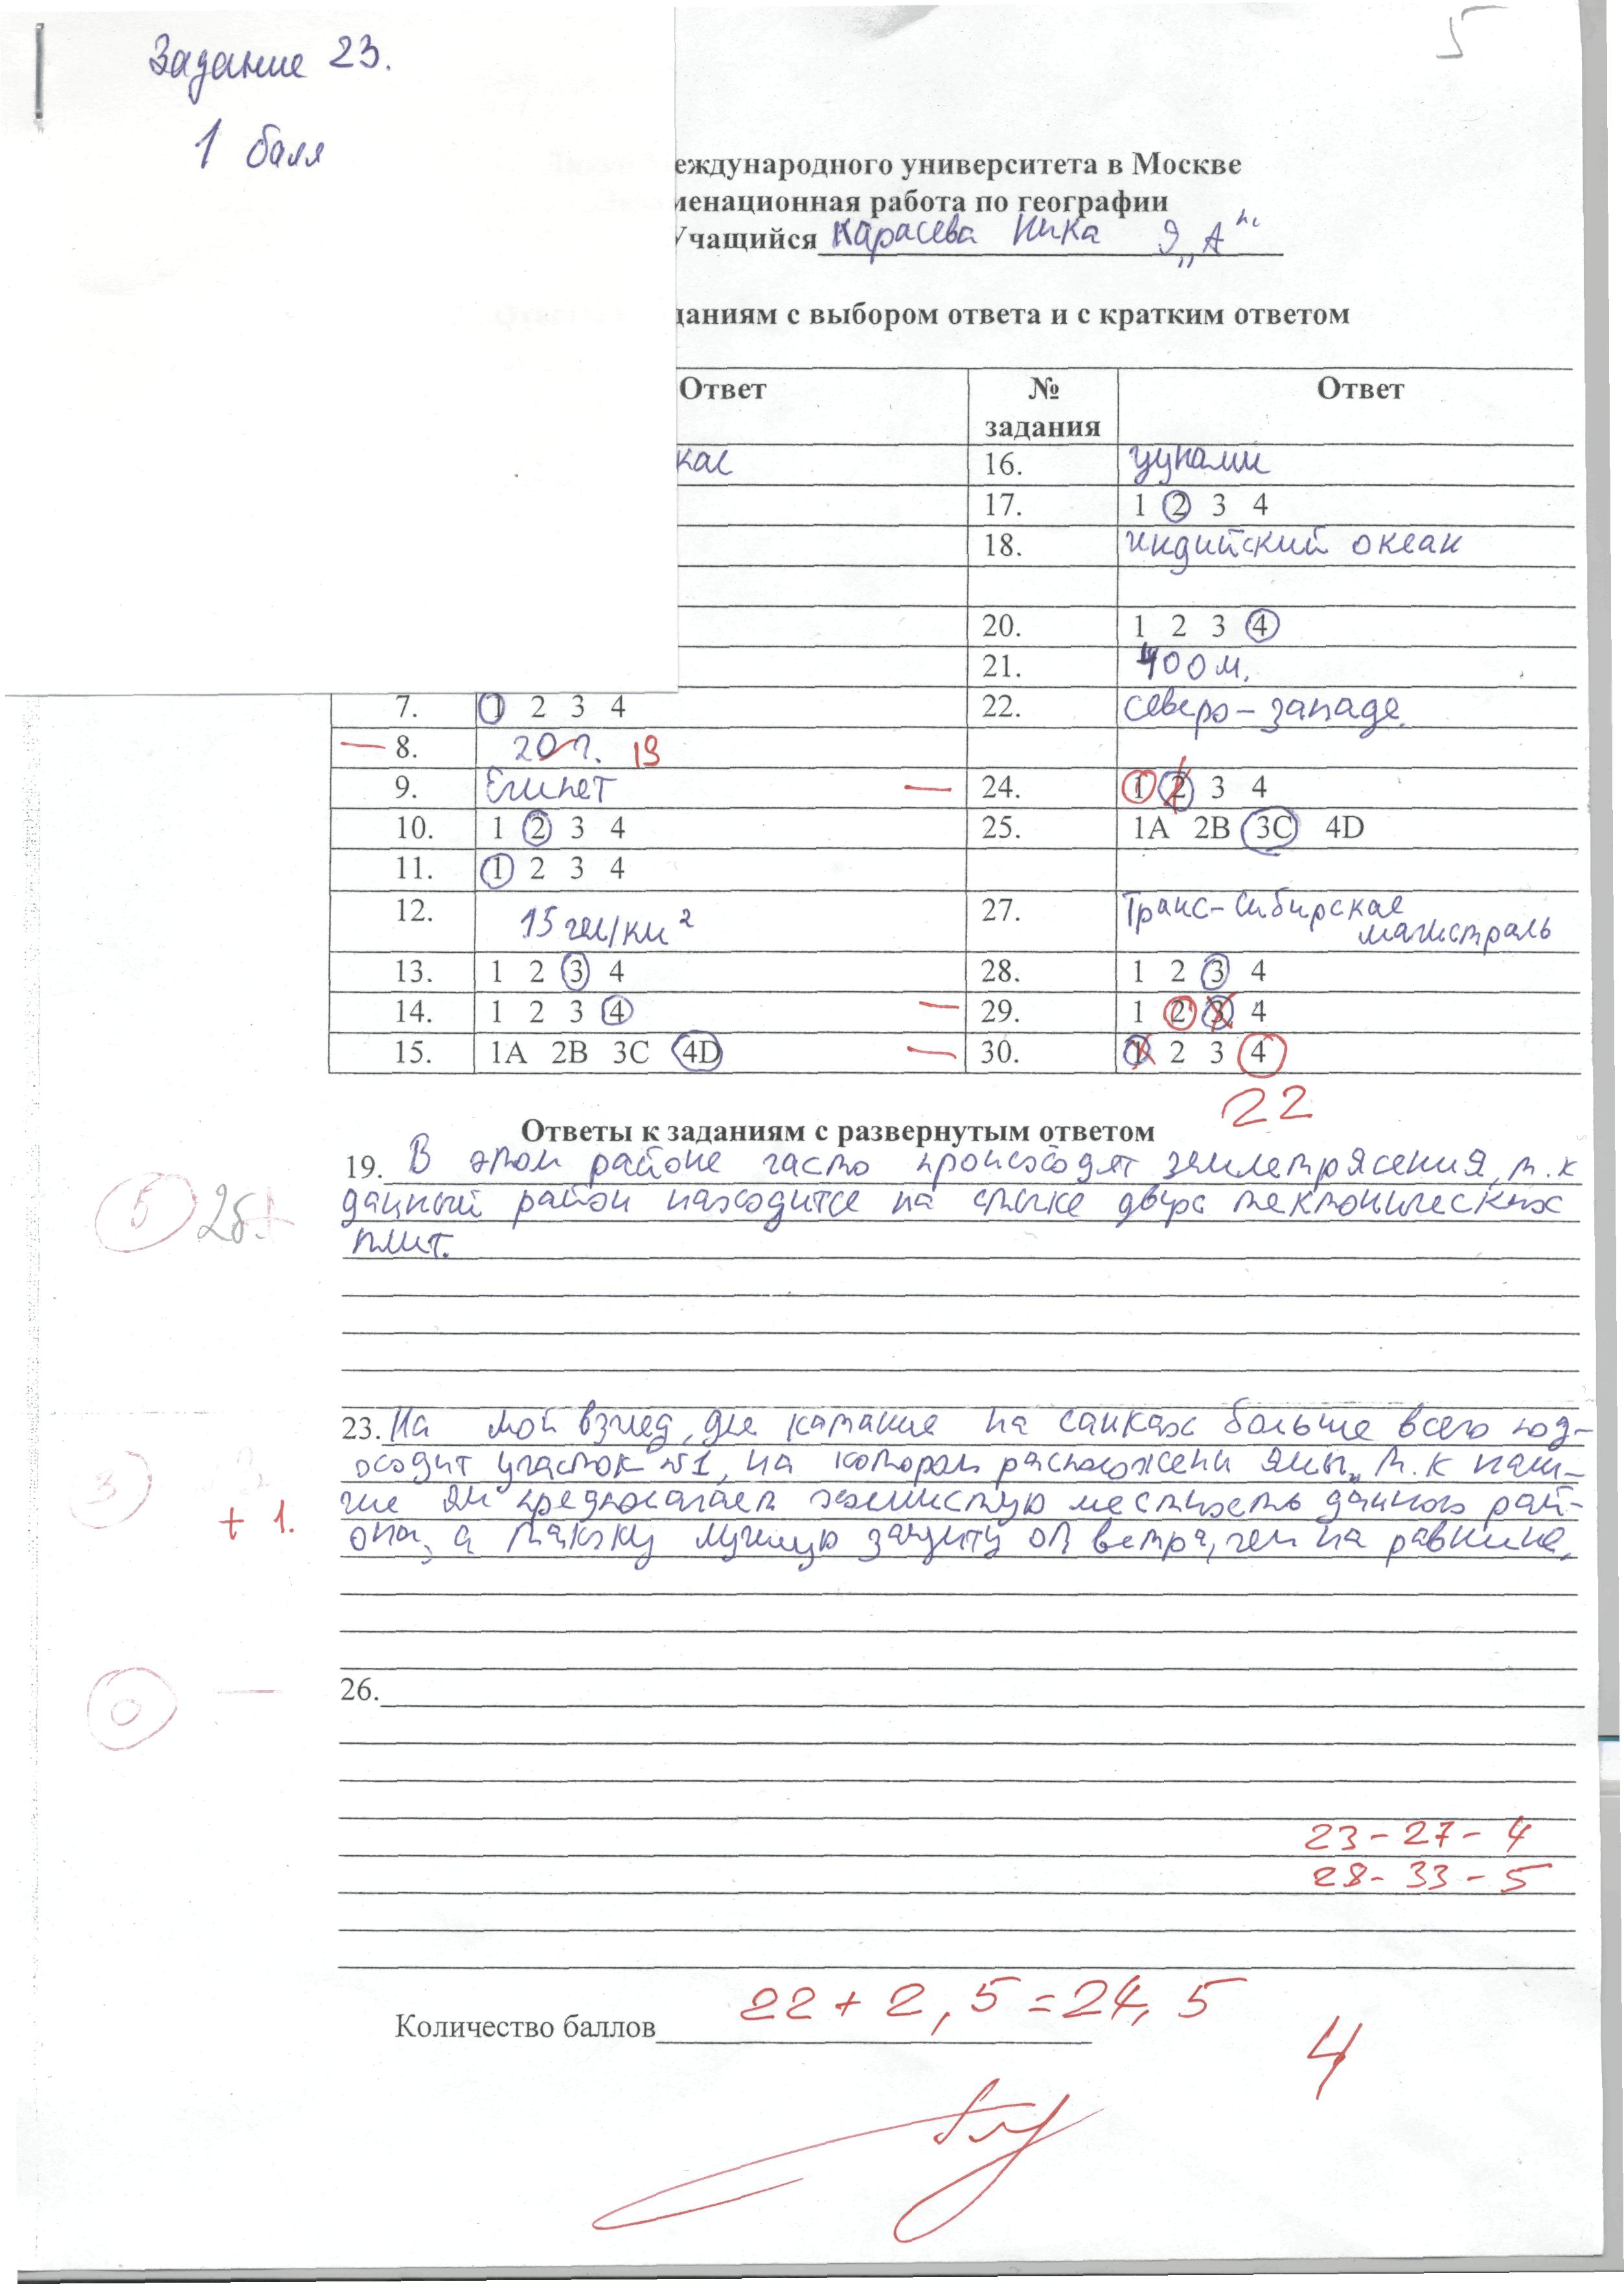 5
Задание 23.
1 балл
еждународного университета в Москве
менационная работа по географии
Учащийся Карасева Ника 9 „А"
даниям с выбором ответа и с кратким ответом
Ответ № задания Ответ
кас 16. цунами
17. 1 2 3 4
18. индийский океан
20. 1 2 3 4
21. 400 м.
7. 1 2 3 4 22. северо-западе.
— 8. 20 г. 19
9. Египет — 24. 1 2 3 4
10. 1 2 3 4 25. 1A 2B 3C 4D
11. 1 2 3 4
12. 15 чел/км² 27. Транс-Сибирская магистраль
13. 1 2 3 4 28. 1 2 3 4
14. 1 2 3 4 — 29. 1 2 3 4
15. 1A 2B 3C 4D — 30. 1 2 3 4
22
Ответы к заданиям с развернутым ответом
19. В этом районе часто происходят землетрясения, т.к
5 2б.
данный район находится на стыке двух тектонических
плит.
23. На мой взгляд, для катания на санках больше всего под-
3
оходит участок №1, на котором расположены ямы, т.к нали-
+ 1.
чие ям предполагает холмистую местность данного рай-
она, а также лучшую защиту от ветра, чем на равнине.
0 —
26.
23-27-4
28-33-5
Количество баллов 22+2,5=24,5
4